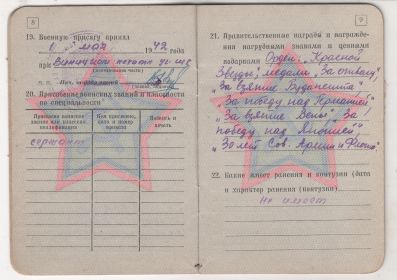 8
19. Военную присягу принял
1 мая 1942 года
при
(наименование части)
20. Присвоение воинских званий и классности
по специальности
Присвоено воинское звание или классность, квалификация
Кем присвоено, дата и номер приказа
Подпись и печать
сержант
9
21. Правительственные награды и награждения
нагрудными знаками и ценными
подарками Орден „Красной
Звезды", медали „За отвагу"
„За взятие Будапешта"
„За победу над Германией"
„За взятие Вены", „За
победу над Японией"
„30 лет Сов. Армии и Флота"
22. Какие имеет ранения и контузии (дата
и характер ранения (контузии)
не имеет